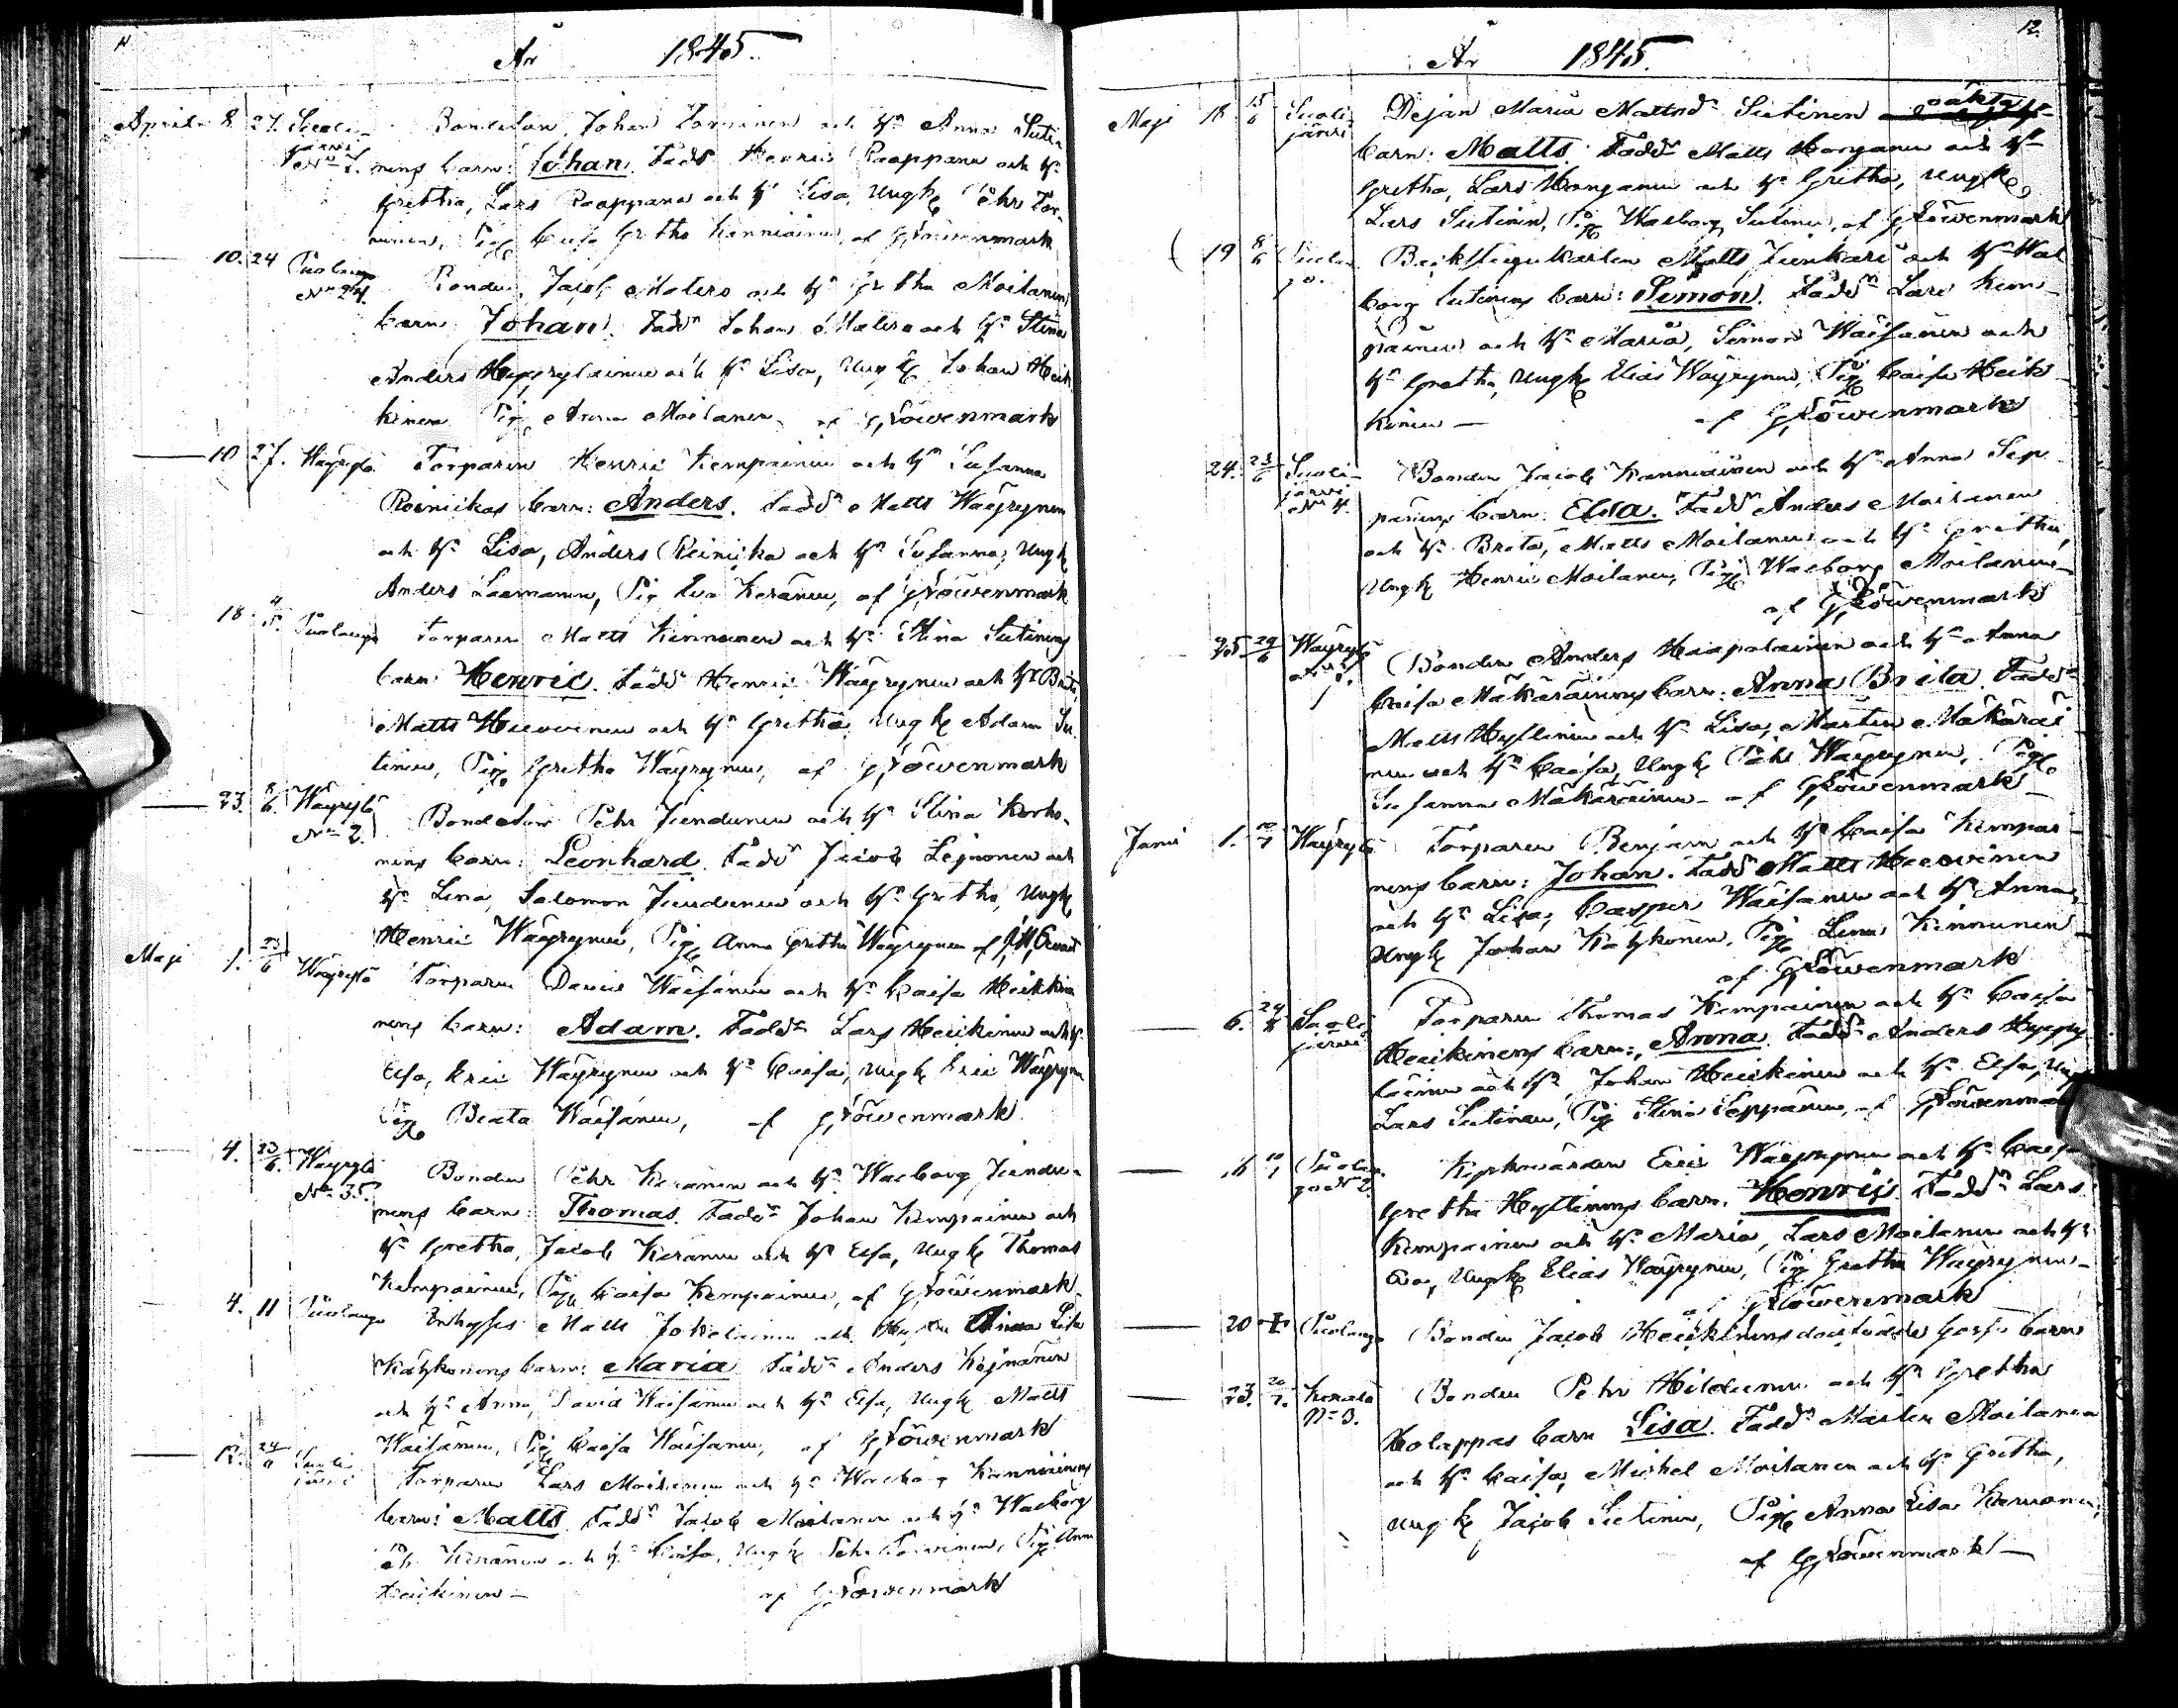 11
År 1845.
April 8 27. Suoli- Bondeson Johan Torvinen och H:n Anna Suti-
järvi
N:o 7. nens barn: Johan. Fadd:r Henric Raappana och H:n
Gretha, Lars Raappana och H:n Lisa, Ungk Pehr Tor-
ninen, Pig Caisa Gretha Kinniäinen, af G Löwenmark
10. 24 Puolango Bonden Jacob Matero och H:n Gretha Moilanens
N:o 24.
barn Johan. Fadd:r Johan Matero och H:n Stina
Anders Heprylainen och H:n Lisa, Ungk Johan Heik-
kinen Pig Anna Moilanen, af G Löwenmark
10 27. Wäyrylä Torparen Henric Kempainen och H:n Susanna
Reinikas barn: Anders. Fadd:r Matts Wäyrynen
och H:n Lisa, Anders Reinika och H:n Susanna, Ungk
Anders Laamanen, Pig Eva Keränen, af G Löwenmark
18 4/5 Puolango Torparen Matts Kinnunen och H:n Stina Sutinens
barn Henric. Fadd:r Henric Wäyrynen och H:n Brita,
Matts Heicvinen och H:n Gretha, Ungk Adam Su-
tinen, Pig Gretha Wäyrynen, af G Löwenmark
23. 8/6. Wäyrylä Bondeson Pehr Jundunen och H:n Stina Korho-
N:o 2.
nens barn: Leonhard. Fadd:r Jacob Leinonen och
H:n Lena, Salomon Jundunen och H:n Gretha, Ungk
Henric Wäyrynen, Pig Anna Gretha Wäyrynen af
Maji 1. 23/6 Wäyrylä Torparen David Wäisänen och H:n Caisa Heikki-
nens barn: Adam. Fadd:r Lars Heikinen och H:n
Elsa, Eric Wäyrynen och H:n Caisa, Ungk Eric Wäyrynen
Pig Beata Wäisänen, af G Löwenmark.
4. 23/6. Wäyrylä Bonden Pehr Keränen och H:n Walborg Jundu-
N:o 35.
nens barn: Thomas. Fadd:r Johan Kempainen och
H:n Gretha, Jacob Keränen och H:n Elsa, Ungk Thomas
Kempainen, Pig Caisa Kempainen, af G Löwenmark.
4. 11 Puolango Inhyses Matts Jokelainen och Hu Anna Lisa
Kätkönens barn: Maria Fadd:r Anders Kojnanen
och H:n Anna, David Wäisänen och H:n Elsa, Ungk Matts
Wäisänen, Pig Caisa Wäisänen, af G Löwenmark
12. 24/6 Suoli Torparen Lars Moilanen och H:n Walborg Kanniäinens
järvi
barn: Matts. Fadd:r Jacob Moilanen och H:n Walborg
Keränen och H:n Caisa, Ungk Pehr Torvinen, Pig Anna
Heikinen - af G Löwenmark
12.
År 1845.
Maji 18 15/6 Suoli- Pejan Maria Mattsd:r Sutinens oäkta
järvi
barn: Matts. Fadd:r Matts Horganen och H:n
Gretha, Lars Horganen och H:n Gretha, Ungk
Lars Sutinen, Pig Walborg Sutinen, af G Löwenmark
19 8/6 Puolan- Backstugukarlen Matts Junkari och H:n Wal-
go.
borg Sutinens barn: Simon. Fadd:r Lars Kem-
painen och H:n Maria, Simon Wäisänen och
H:n Gretha, Ungk Elias Wäyrynen, Pig Caisa Heik-
kinen — af G Löwenmark
24. 23/6 Suoli- Bonden Jacob Kanniäinen och H:n Anna Sep-
järvi
N:o 4.
pänens barn: Elsa. Fadd:r Anders Moilanen
och H:n Breta, Matts Moilanen och H:n Gretha,
Ungk Henric Moilanen, Pig Walborg Moilanen
af G Löwenmark
25 29/6 Wäyrylä Bonden Anders Haapalainen och H:n Anna
Caisa Mäkäräinens barn: Anna Brita. Fadd:r
Matts Hyttinen och H:n Lisa, Martin Mäkäräi-
nen och H:n Caisa, Ungk Pehr Wäyrynen, Pig
Susanna Mäkäräinen - af G Löwenmark
Junii 1. 10/7 Wäyrylä Torparen Benjam och H:n Caisa Kempai-
nens barn: Johan. Fadd:r Matts Heicvinen
och H:n Lisa, Casper Wäisänen och H:n Anna,
Ungk Johan Kätkönen, Pig Lena Kinnunen
af G Löwenmark
6. 24/8 Suoli Torparen Thomas Kempainen och H:n Caisa
järvi
Heikinens barn: Anna. Fadd:r Anders Hyry-
läinen och H:n, Johan Heikinen och H:n Elsa, Ungk
Lars Sutinen, Pig Stina Seppänen, af G Löwenmark
16 10/7 Puolan- Kyrkovärden Eric Wäyrynen och H:n Caisa
go N:o 2.
Gretha Hyttinens barn. Henric Fadd:r Lars
Kempainen och H:n Maria, Lars Moilanen och H:n
Eva, Ungk Elias Wäyrynen, Pig Gretha Wäyrynen
af G Löwenmark
20 Puolango Bonden Jacob Heikkinens dödfödde barn
23. 20/7. Kerälä Bonden Pehr Hildunen och H:n Gretha
N:o 3.
Holappas barn Lisa. Fadd:r Marten Moilanen
och H:n Caisa, Michel Moilanen och H:n Gretha,
Ungk Jacob Sutinen, Pig Anna Lisa Keränen,
af G Löwenmark —